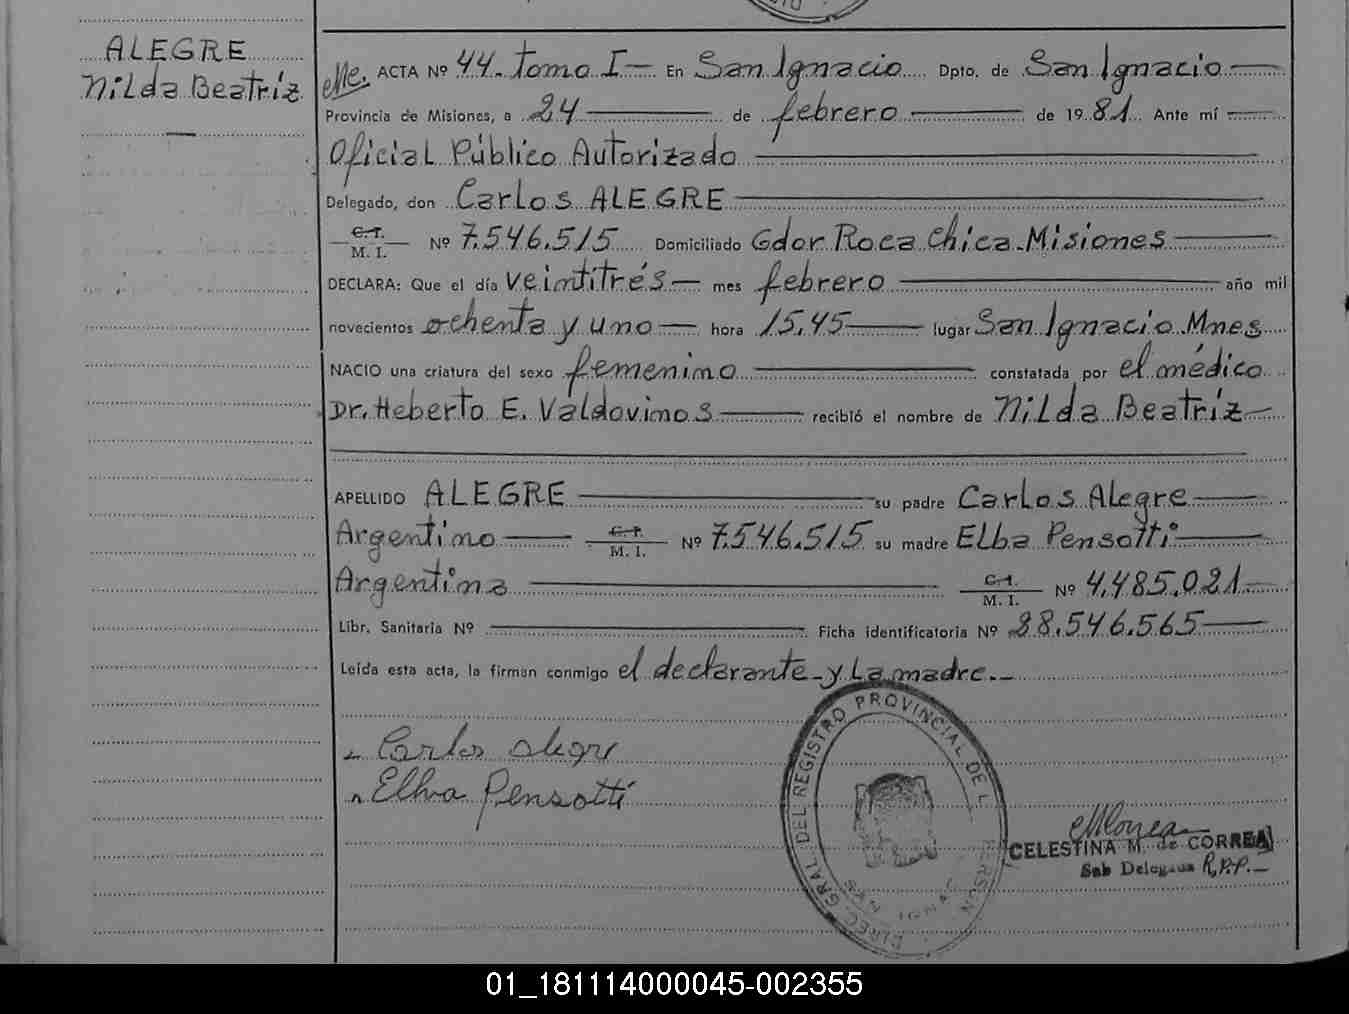 ALEGRE
Nilda Beatríz
ACTA Nº 44. Tomo I — En San Ignacio Dpto. de San Ignacio
Provincia de Misiones, a 24 de febrero de 1981. Ante mí
Oficial Público Autorizado
Delegado, don Carlos ALEGRE
C.I.
M. I. Nº 7.546.515 Domiciliado Gdor Roca Chica-Misiones
DECLARA: Que el día veintitrés mes febrero año mil
novecientos ochenta y uno hora 15,45 lugar San Ignacio Mnes
NACIO una criatura del sexo femenino constatada por el médico
Dr. Heberto E. Valdovinos recibió el nombre de Nilda Beatríz
APELLIDO ALEGRE su padre Carlos Alegre
Argentino C.I.
M. I. Nº 7.546.515 su madre Elba Pensotti
Argentina C.I.
M. I. Nº 4.485.021
Libr. Sanitaria Nº Ficha identificatoria Nº 28.546.565
Leída esta acta, la firman conmigo el declarante y la madre.
Carlos Alegre
Elba Pensotti
DIREC. GRAL DEL REGISTRO PROVINCIAL DE L PERSON
SAN IGNAC
CELESTINA M. de CORREA
Sub Delegada R.P.P.
01_181114000045-002355